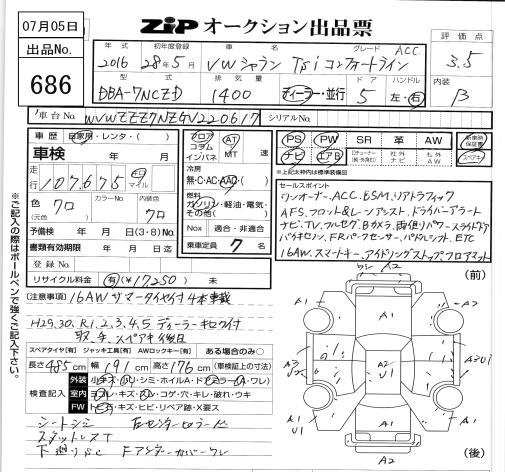 07月05日
出品No.
686
ZiP オークション出品票
評価点
3.5
内装
B
年式 初年度登録 車名 グレード ACC
2016 28年5月 VWシャラン TSi コンフォートライン
型式 排気量 ドア ハンドル
DBA-7NCZD 1400 ディーラー・並行 5 左・右
車台No. WVWZZZ7NZGV220617 シリアルNo.
車歴 自家用・レンタ・( )
車検 年 月
走行 107,675 km マイル
色 クロ (元色) カラーNo. 内装色 クロ
予備検 年 月 (3・8) No.
書類有効期限 年 月 日
登録No.
リサイクル料金 有 (¥17250) 未
フロア コラム インパネ AT MT 速
冷房 無・C・AC・AAC・( )
燃料 ガソリン・軽油・電気・その他( )
Nox 適合・非適合
乗車定員 7 名
PS PW SR 革 AW 新車時保証書
ナビ エアB 社外ナビ 社外AW スペアキー
※上記太枠内は標準装備品
セールスポイント
ワンオーナー、ACC、BSM、リアトラフィック
AFS、フロント&レーンアシスト、ドライバーアラート
ナビ、TV、フルセグ、Bカメラ、両側パワースライドドア
バイキセノン、FRパークセンサー、パドルシフト、ETC
16AW、スマートキー、アイドリングストップ、フロアマット
(注意事項) 16AW サマータイヤ付 4本車載
H29,30,R1,2,3,4,5 ディーラーキロク付
取、手、スペアキ後日
スペアタイヤ[有] ジャッキ工具[有] AWロックキー[有] ある場合のみ○
長さ 485 cm 幅 191 cm 高さ 176 cm (車検証上の寸法)
検査記入
外装
室内 コゲ・穴・キレ・破れ・ウキ
FW トビ石・キズ・ヒビ・リペア跡・X要ス
シートシミ
下廻りサビ Fアンダーカバーワレ
※ご記入の際はボールペンで強くご記入下さい。
(前)
A2
A1
A2
A3
A2
A1
U1
A1
A2
(後)